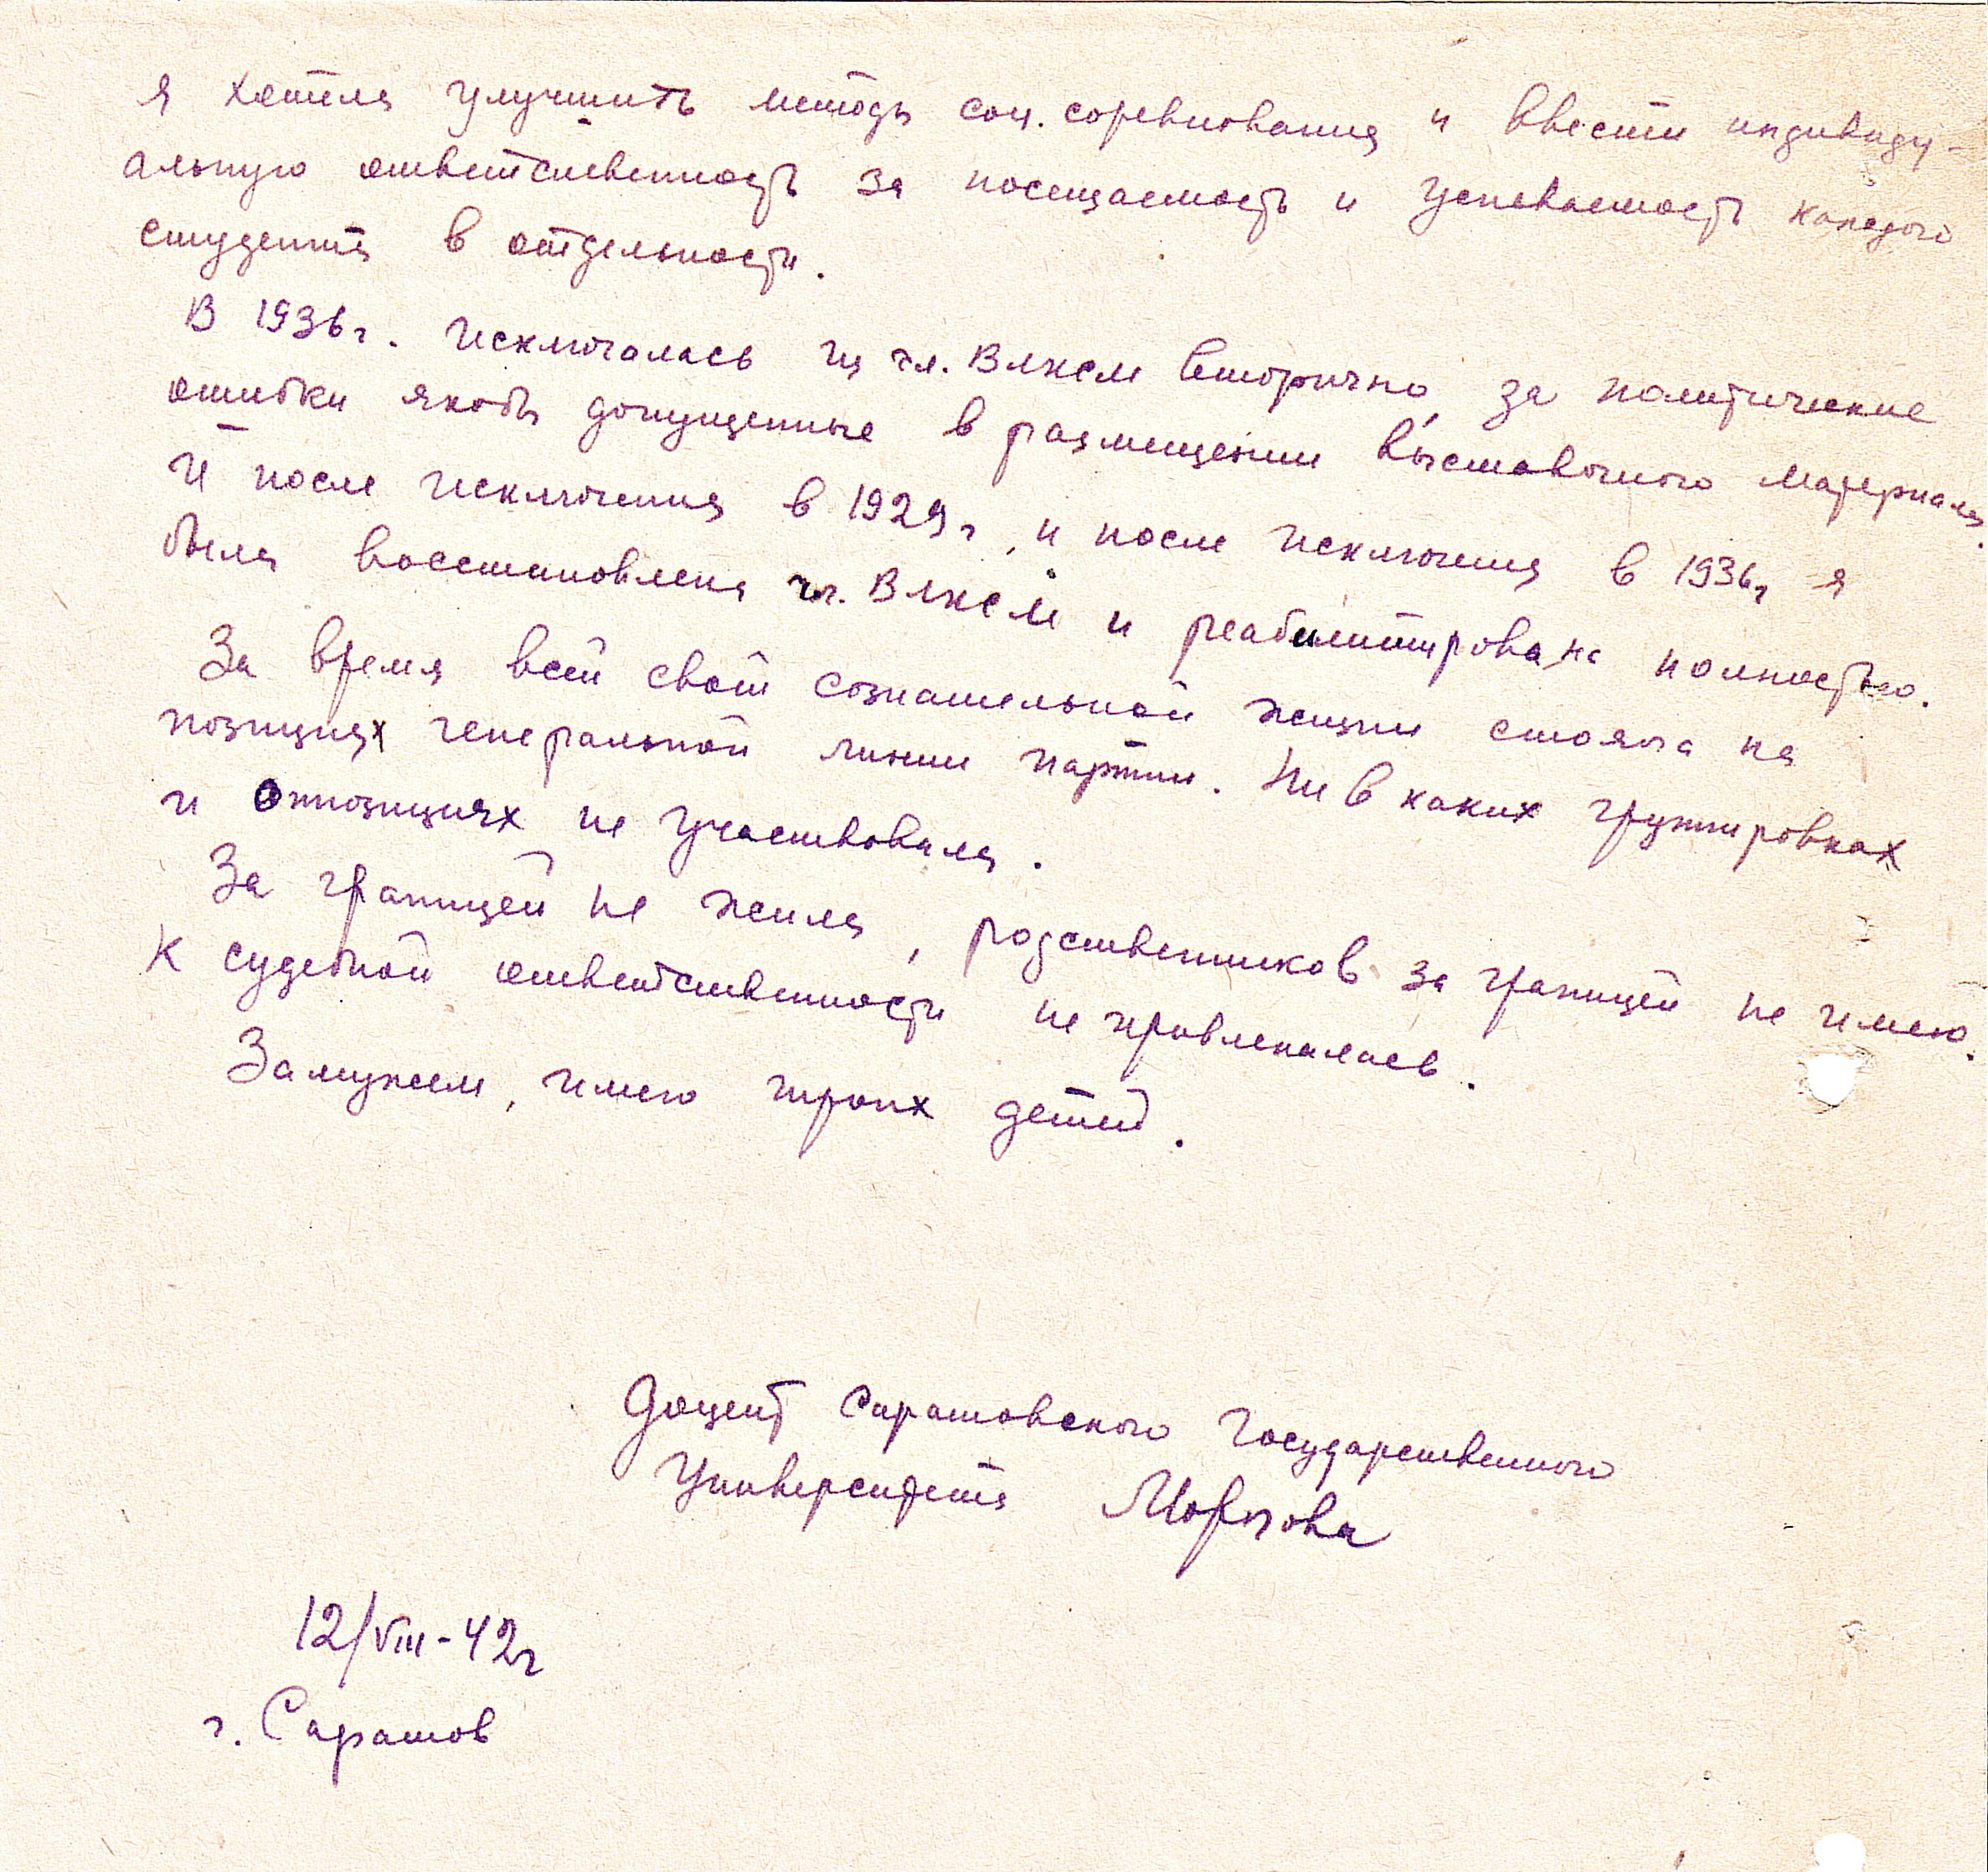 я хотела улучшить методы соц. соревнования и ввести индивиду-
альную ответственность за посещаемость и успеваемость каждого
студента в отдельности.
В 1936г. исключалась из чл. ВЛКСМ вторично, за политические
ошибки якобы допущенные в размещении выставочного материала.
И после исключения в 1929г, и после исключения в 1936г я
была восстановлена чл. ВЛКСМ и реабилитирована полностью.
За время всей своей сознательной жизни стояла на
позициях генеральной линии партии. Ни в каких группировках
и оппозициях не участвовала.
За границей не жила, родственников за границей не имею.
К судебной ответственности не привлекалась.
Замужем, имею троих детей.
Доцент Саратовского Государственного
Университета Морозова
12/VIII-42г
г. Саратов